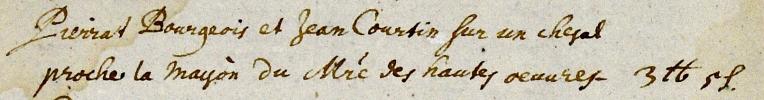 Pierrat Bourgeois et Jean Courtin sur un chesal
proche la mayson du Mre des hautes oeuvres 3 tt 5 s.